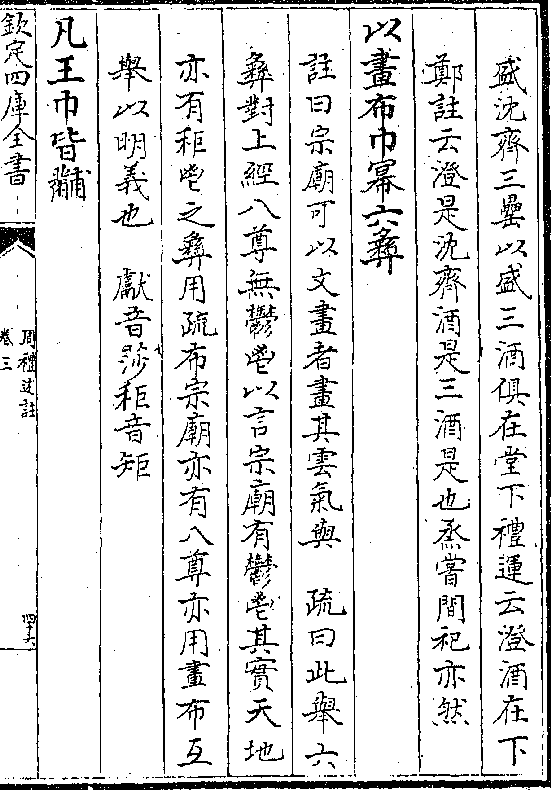 盛沈齊三罍以盛三酒俱在堂下禮運云澄酒在下
鄭註云澄是沈齊酒是三酒是也烝嘗間祀亦然
以畫布巾冪六彝
註曰宗廟可以文畫者畫其雲氣與　疏曰此舉六
彝對上經八尊無鬱鬯以言宗廟有鬱鬯其實天地
亦有秬鬯之彝用疏布宗廟亦有八尊亦用畫布互
舉以明義也　獻音莎秬音矩
凡王巾皆黼
欽定四庫全書
周禮述註
卷三
四十六